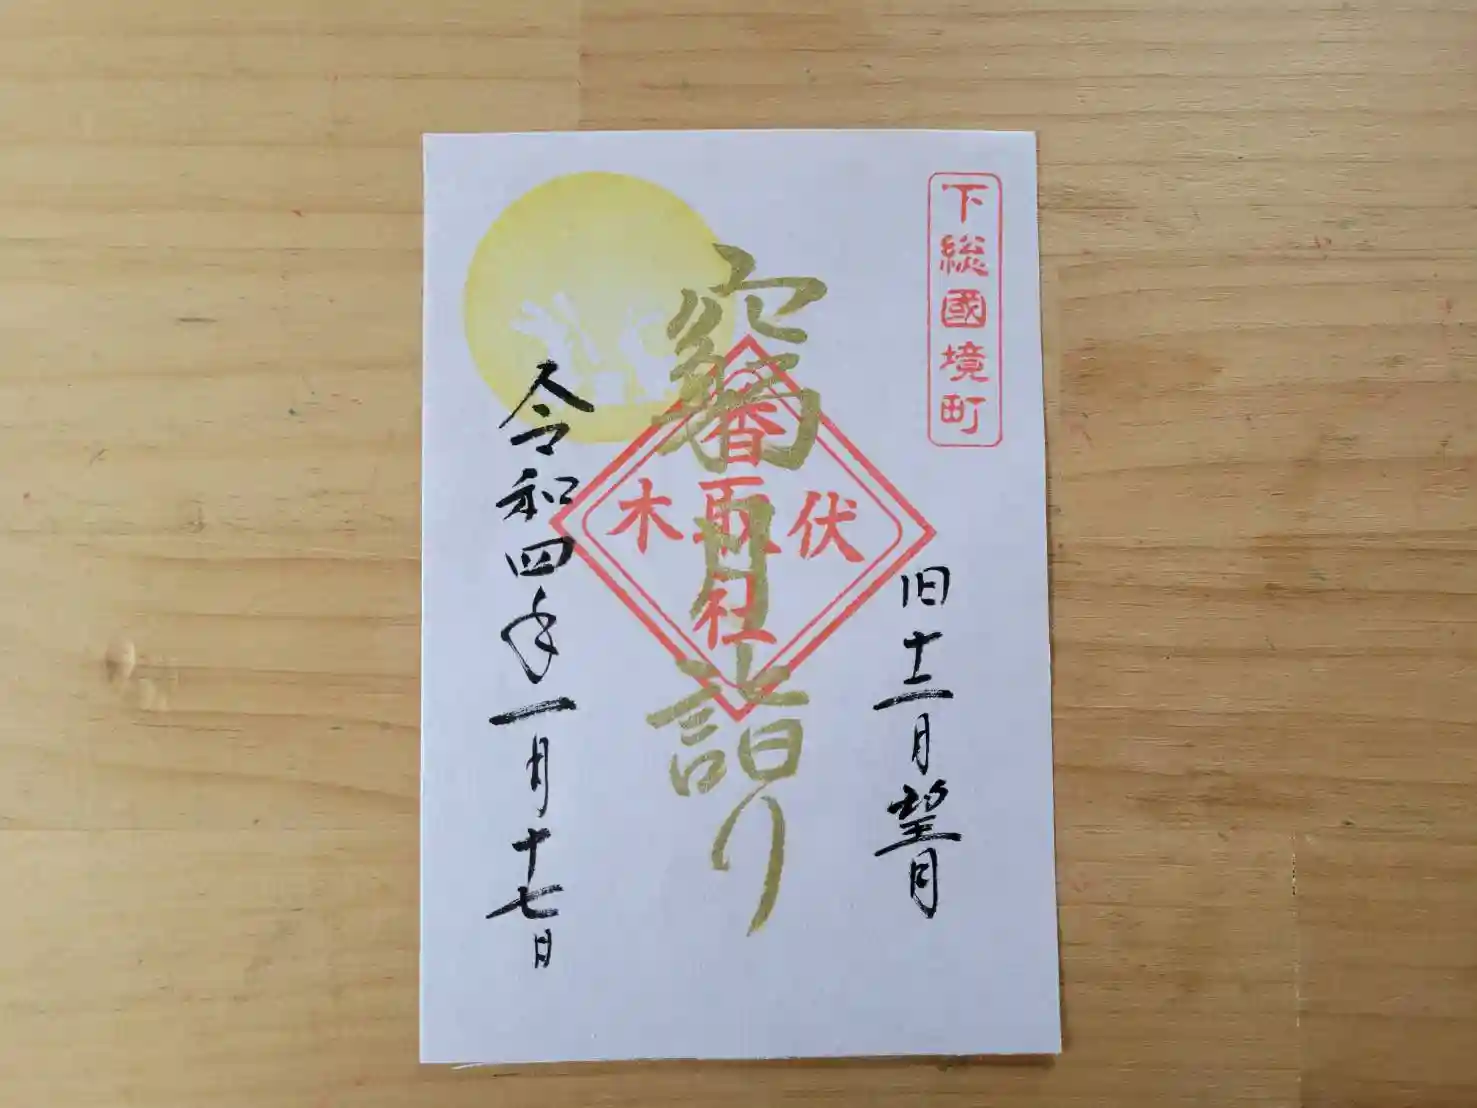 下総國境町
旧十二月望月
窮月詣り
伏木
香取社
令和四年一月十七日